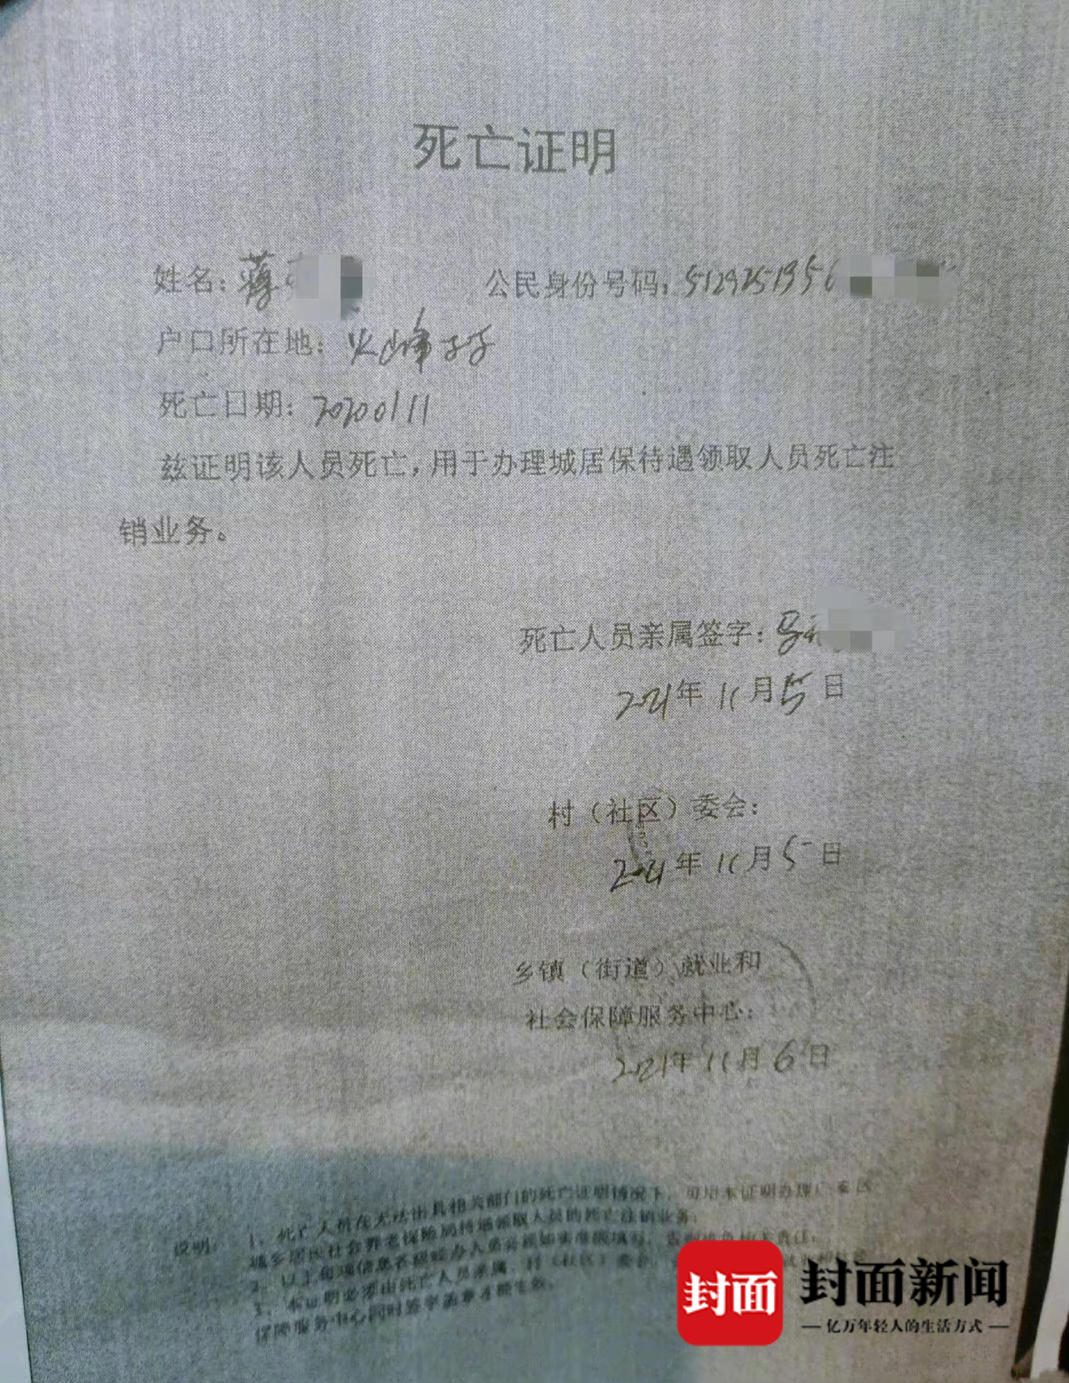 死亡证明
姓名：蒋 公民身份号码：5129251956
户口所在地：火峰
死亡日期：20200111
兹证明该人员死亡，用于办理城居保待遇领取人员死亡注
销业务。
死亡人员亲属签字：
2021年11月5日
村（社区）委会：
2021年11月5日
乡镇（街道）就业和
社会保障服务中心：
2021年11月6日
说明：1、死亡人员在无法出具相关部门的死亡证明情况下，可用本证明办理广安区
城乡居民社会养老保险局待遇领取人员的死亡注销业务；
2、以上每项信息各级经办人员必须如实准确填写，否则承担相关责任；
3、本证明必须由死亡人员亲属、村（社区）委会、
保障服务中心同时签字盖章才能生效。
封面 封面新闻
亿万年轻人的生活方式